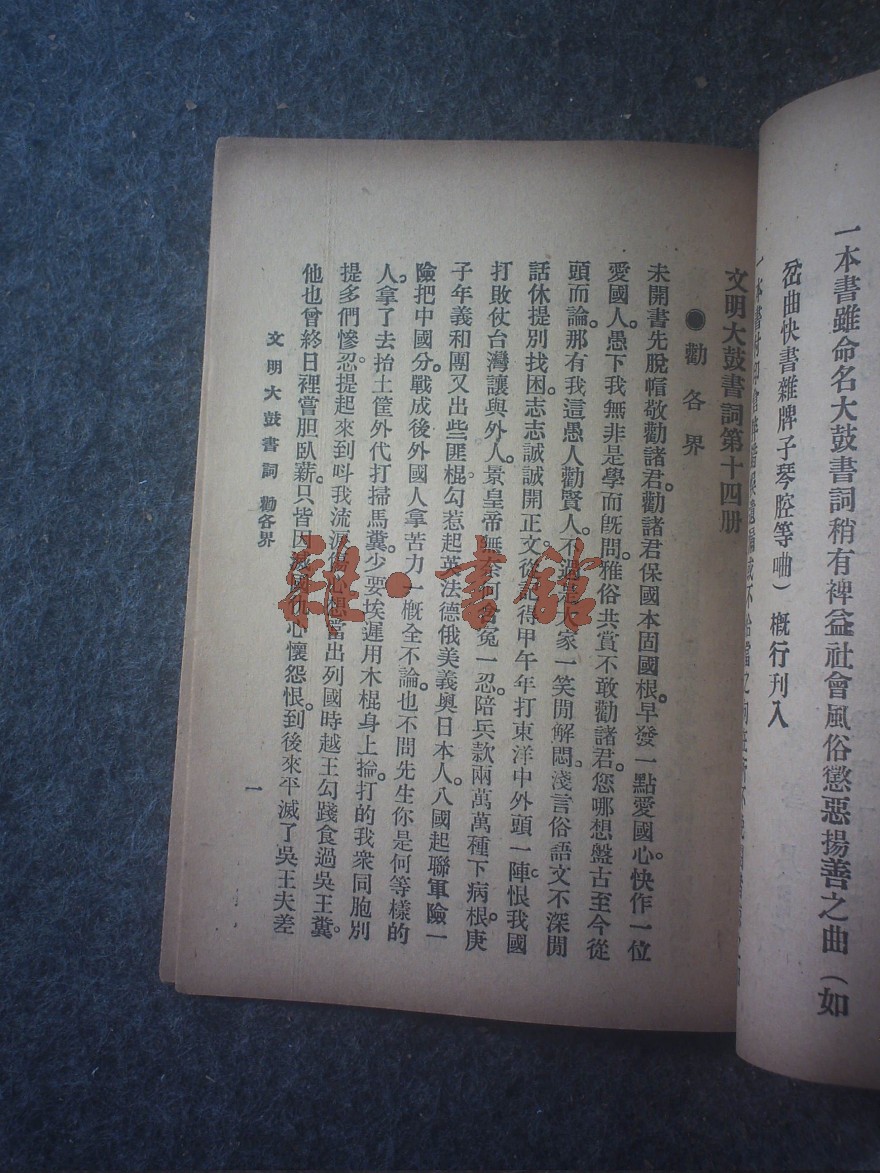 一本書雖命名大鼓書詞稍有裨益社會風俗懲惡揚善之曲（如
岔曲快書雜牌子琴腔等曲）概行刊入
文明大鼓書詞第十四册
●勸各界
未開書先脫帽敬勸諸君。勸諸君保國本固國根。早發一點愛國心。快作一位
愛國人。愚下我無非是學而旣問。雅俗共賞不敢勸諸君。您哪想盤古至今從
頭而論。那有我這愚人勸賢人。不過 大家一笑閒解悶。淺言俗語文不深。閒
話休提別找困。志志誠誠開正文。從 得甲午年打東洋中外頭一陣。恨我國
打敗仗台灣讓與外人。景皇帝無奈何 冤一忍。陪兵款兩萬萬種下病根。庚
子年義和團又出些匪棍。勾惹起英法德俄美義奧日本人。八國起聯軍險一
險把中國分。戰成後外國人拿苦力一概全不論。也不問先生你是何等樣的
人。拿了去抬土筐外代打掃馬糞。少要埃遲用木棍身上掄。打的我衆同胞別
提多們慘忍。提起來到呌我流淚傷心。想當出列國時越王勾踐食過吳王糞。
他也曾終日裡嘗胆臥薪。只皆因 國仇心懷怨恨。到後來平滅了吳王夫差
文明大鼓書詞 勸各界
一
雜·書館